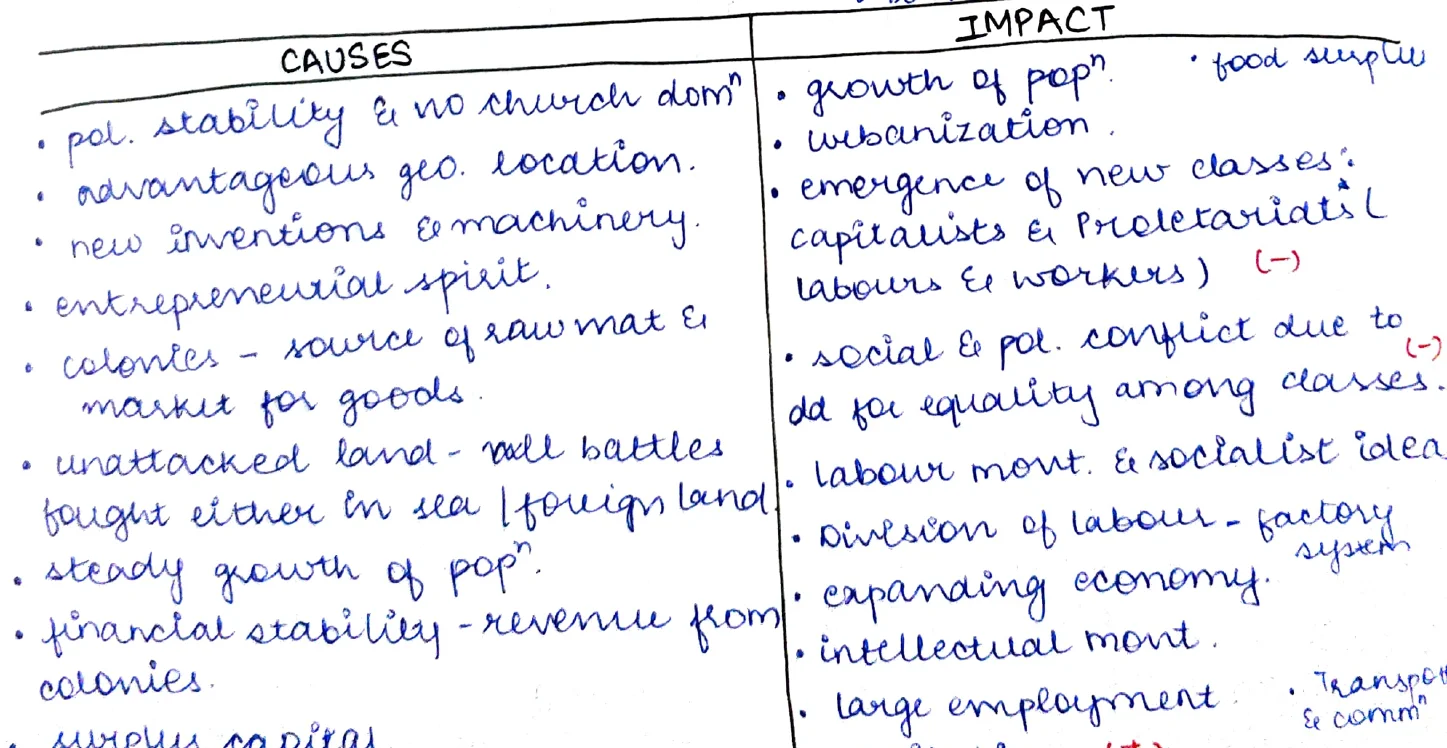 CAUSES
• pol. stability & no church domⁿ
• advantageous geo. location.
• new inventions & machinery.
• entrepreneurial spirit.
• colonies - source of raw mat &
market for goods.
• unattacked land - all battles
fought either in sea / foreign land.
• steady growth of popⁿ.
• financial stability - revenue from
colonies.
• surplus capital
IMPACT
• growth of popⁿ. • food surplu
• urbanization.
• emergence of new classes:
capitalists & Proletariats (
labours & workers) (-)
• social & pol. conflict due to
dd for equality among classes. (-)
• labour movt. & socialist idea
• Division of labour - factory
system
• expanding economy.
• intellectual movt.
• large employment. • Transpo
& commⁿ
(+)